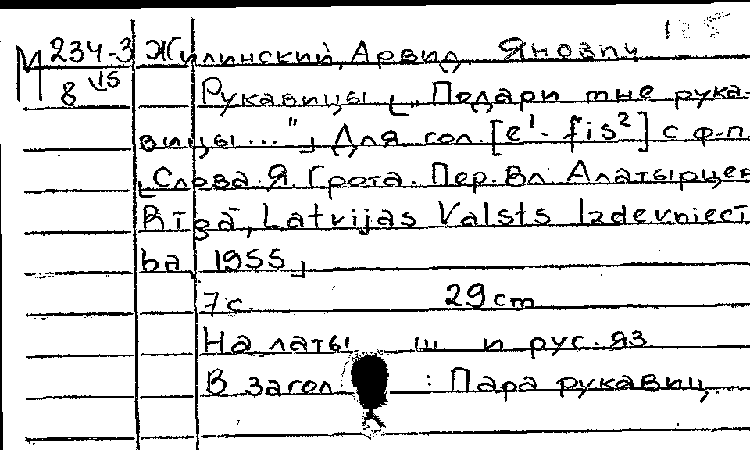 М 234-3 Жилинский, Арвид Янович
8 VI5 Рукавицы [„Подари мне рука-
вицы..." ] Для гол. [e¹- fis²] с ф-п.
[Слова Я. Грота. Пер. Вл Алатырцев
Rīgā, Latvijas Valsts Izdevniecī
ba, 1955]
7 с. 29 cm
На латы ш и рус. яз
В загол : Пара рукавиц.